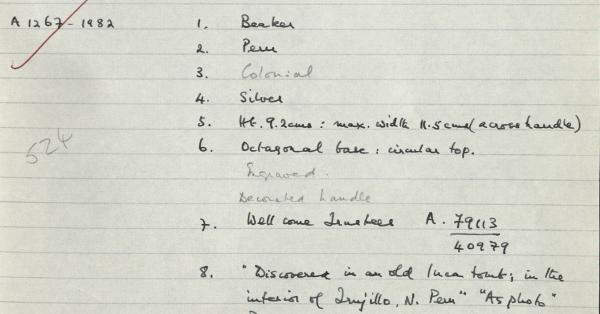 A 1267-1982 1. Beaker
2. Peru
3. Colonial
4. Silver
5. Ht. 9.2cms : max. width 11.5cms (across handle)
524
6. Octagonal base : circular top.
Engraved.
Decorated handle
7. Wellcome Trustees A. 79113
40979
8. "Discovered in an old Inca tomb; in the
interior of Trujillo, N. Peru" "As photo"